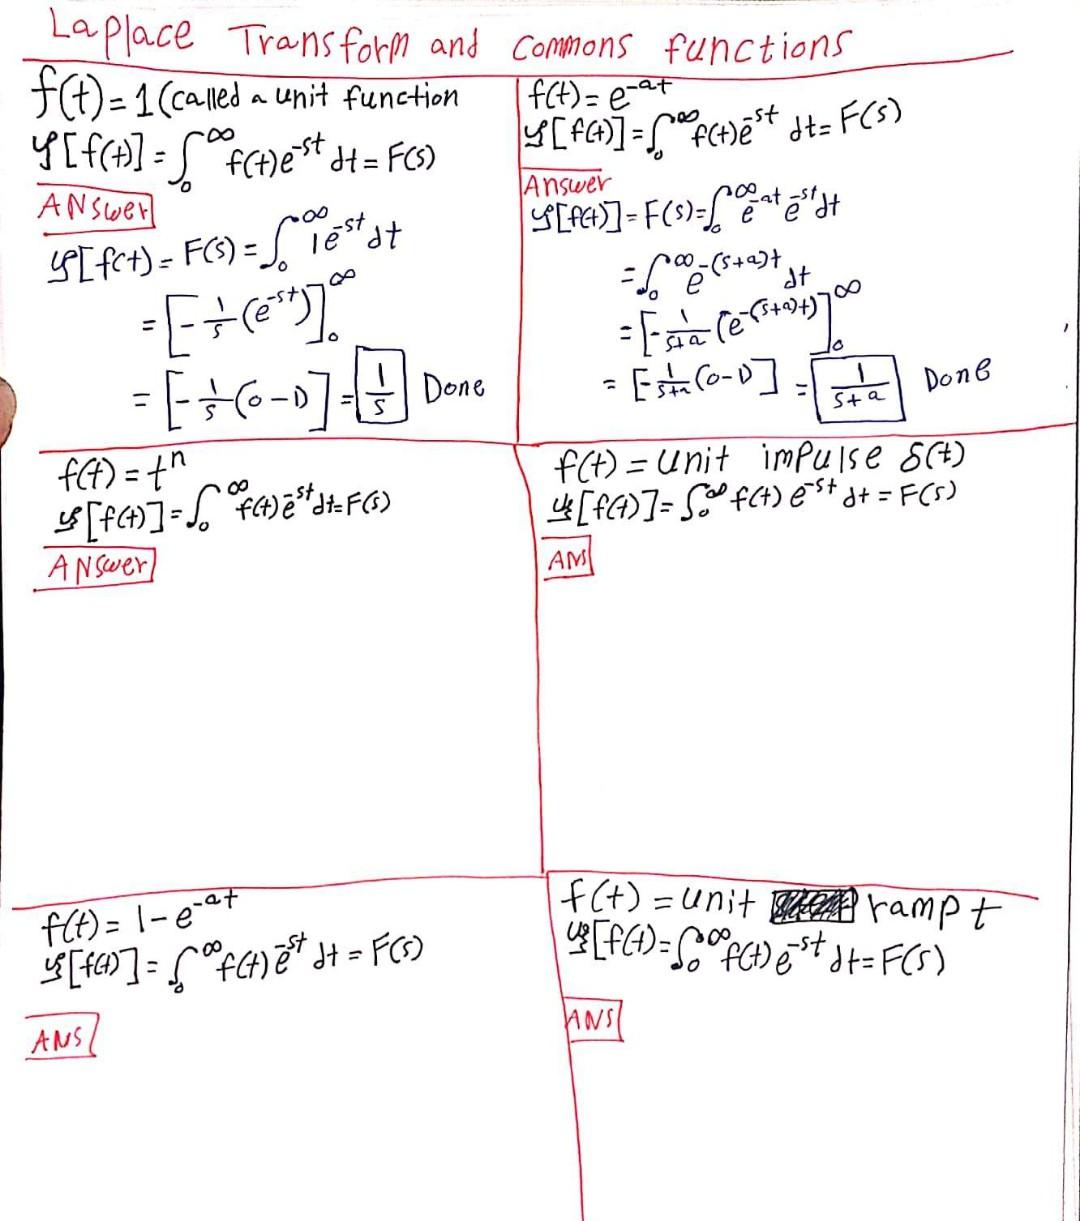 Laplace Transform and Commons functions
f(t) = 1 (called a unit function
ℒ[f(t)] = ∫₀^∞ f(t)e^-st dt = F(s)
ANSwer
ℒ[f(t) = F(s) = ∫₀^∞ 1e^-st dt
= [-1/s (e^-st)]₀^∞
= [-1/s (0-1)] = 1/s Done
f(t) = e^-at
ℒ[f(t)] = ∫₀^∞ f(t)e^-st dt = F(s)
Answer
ℒ[f(t)] = F(s) = ∫₀^∞ e^-at e^-st dt
= ∫₀^∞ e^-(s+a)t dt
= [-1/s+a (e^-(s+a)t)]₀^∞
= [-1/s+a (0-1)] = 1/s+a Done
f(t) = t^n
ℒ[f(t)] = ∫₀^∞ f(t)e^-st dt = F(s)
ANSwer
f(t) = unit impulse δ(t)
ℒ[f(t)] = ∫₀^∞ f(t) e^-st dt = F(s)
ANS
f(t) = 1 - e^-at
ℒ[f(t)] = ∫₀^∞ f(t) e^-st dt = F(s)
ANS
f(t) = unit ramp t
ℒ[f(t) = ∫₀^∞ f(t) e^-st dt = F(s)
ANS